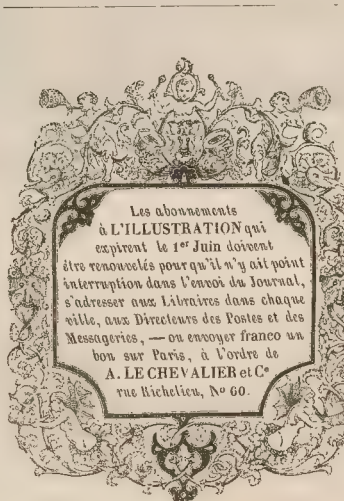 Les abonnements
à L'ILLUSTRATION qui
expirent le 1er Juin doivent
être renouvelés pour qu'il n'y ait point
interruption dans l'envoi du Journal,
s'adresser aux Libraires dans chaque
ville, aux Directeurs des Postes et des
Messageries, — ou envoyer franco un
bon sur Paris, à l'ordre de
A. LE CHEVALIER et Ce
rue Richelieu, No 60.